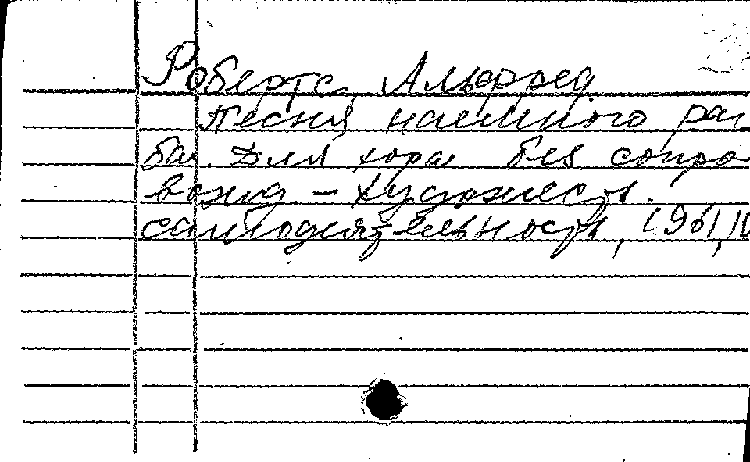 Робертс, Альфред
Песня наемного ра
ба. Для хора без сопро-
вожд – Художеств.
самодеятельность, 1961, №